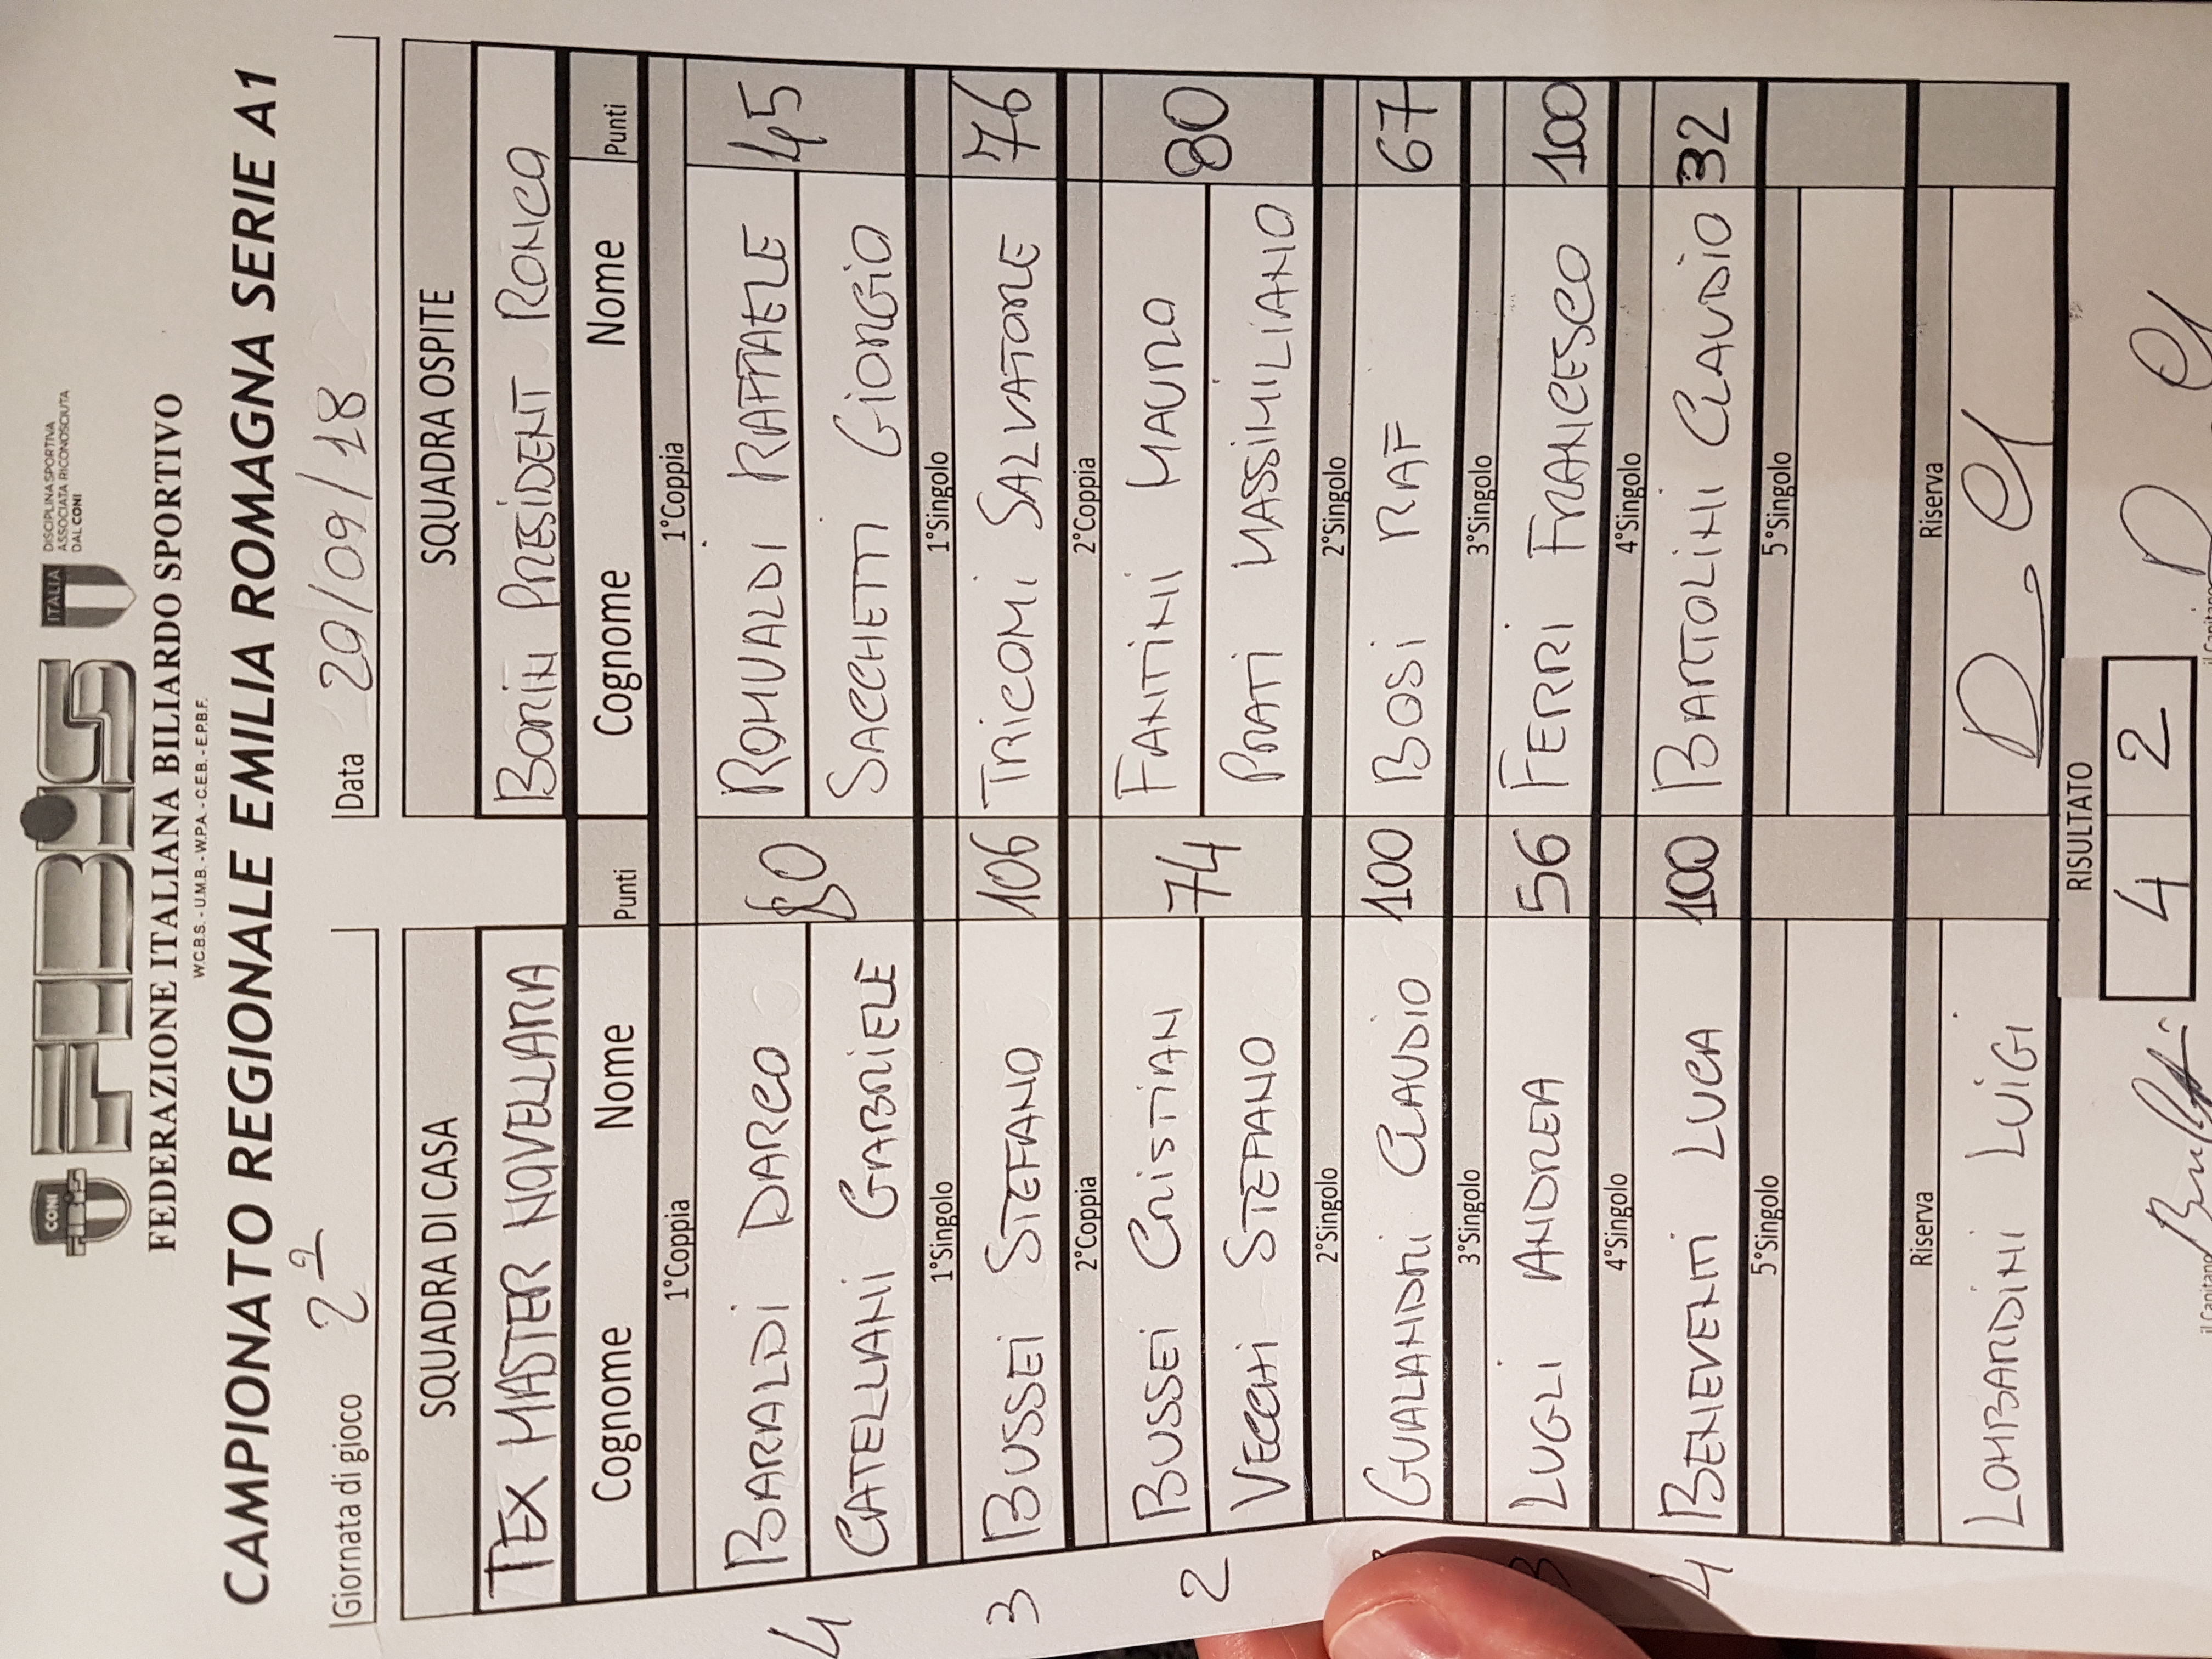 CONI
FIBiS
FIBiS
ITALIA
DISCIPLINA SPORTIVA
ASSOCIATA RICONOSCIUTA
DAL CONI
FEDERAZIONE ITALIANA BILIARDO SPORTIVO
W.C.B.S. - U.M.B. - W.P.A. - C.E.B. - E.P.B.F.
CAMPIONATO REGIONALE EMILIA ROMAGNA SERIE A1
Giornata di gioco 2ª Data 29/09/18
SQUADRA DI CASA SQUADRA OSPITE
TEX MASTER NOVELLARA BONINI PRESIDENT RONCA
Cognome Nome Punti Cognome Nome Punti
1°Coppia 1°Coppia
4 BARALDI DARCO 80 ROMUALDI RAFFAELE 45
CATELLANI GABRIELE SACCHETTI GIORGIO
1°Singolo 1°Singolo
3 BUSSEI STEFANO 106 TRICOMI SALVATORE 76
2°Coppia 2°Coppia
2 BUSSEI CRISTIAN 74 FANTINI MAURO 80
VECCHI STEFANO PRATI MASSIMILIANO
2°Singolo 2°Singolo
GUALANDRI CLAUDIO 100 BOSI RAF 67
3°Singolo 3°Singolo
3 LUGLI ANDREA 56 FERRI FRANCESCO 100
4°Singolo 4°Singolo
4 BENEVENTI LUCA 100 BARTOLINI CLAUDIO 32
5°Singolo 5°Singolo
Riserva Riserva
LOMBARDINI LUIGI
RISULTATO
4 2
il Capitano il Capitano